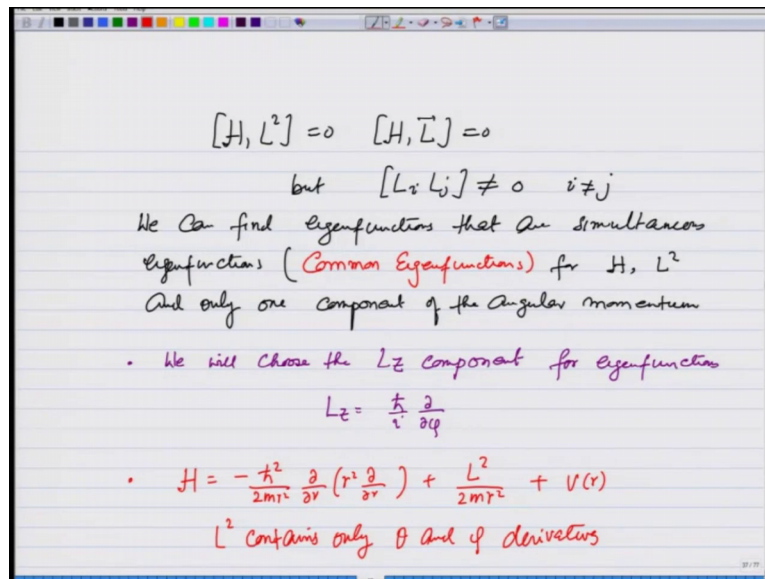 [H, L²] = 0 [H, L⃗] = 0
but [Lᵢ Lⱼ] ≠ 0 i ≠ j
We Can find eigenfunctions that are simultaneous
eigenfunctions ( Common Eigenfunctions) for H, L²
And only one component of the Angular momentum
· We will choose the Lz component for eigenfunctions
Lz = ħ/i ∂/∂φ
· H = - ħ²/2mr² ∂/∂r (r² ∂/∂r) + L²/2mr² + V(r)
L² contains only θ and φ derivatives
37/77